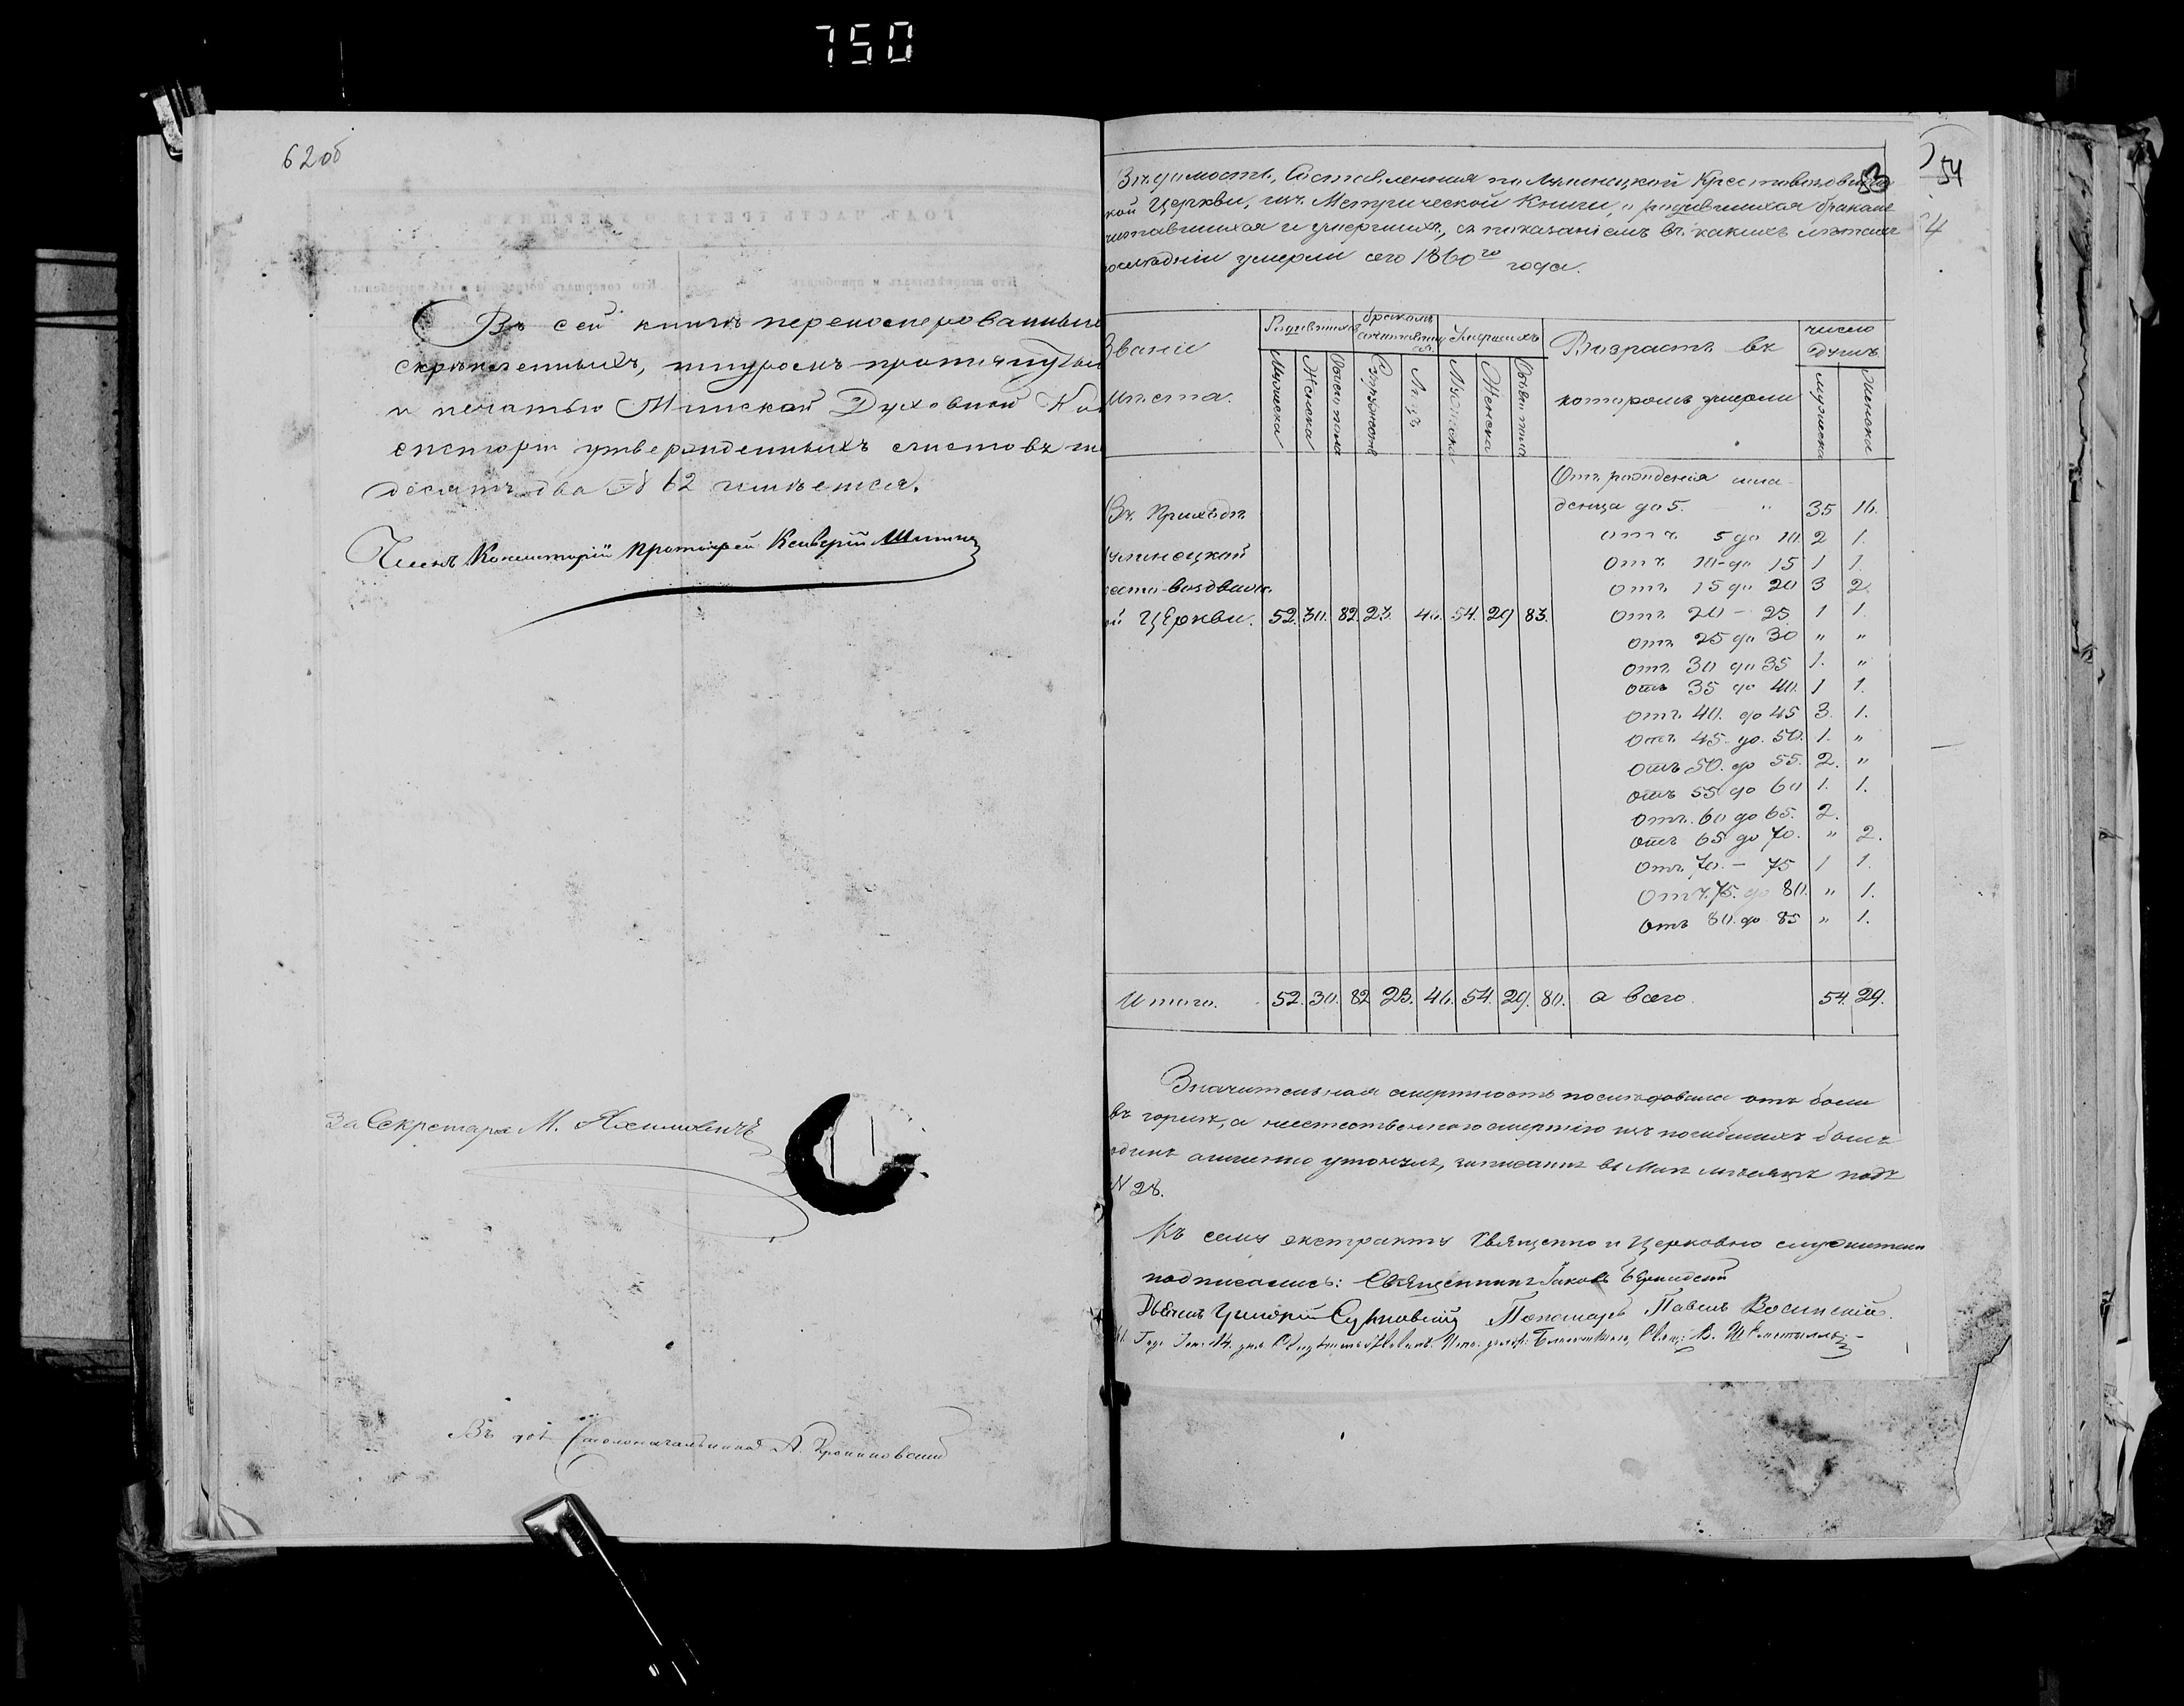 750
62 об
Въ сей книгѣ перенумерованныхъ
скрѣпленныхъ, шнуромъ протянутыхъ
и печатью Минской Духовной Кон
систоріи утвержденныхъ листовъ ше
десятъ два № 62 имѣется.
Членъ Консисторіи Протоіерей
За Секретаря М.
Столоначальника А.
53
54
4
Вѣдомость, Составленная по Лунинецкой Крестовоздвижен
кой Церкви, изъ Метрической Книги, о родившихся бракомъ
сочетавшихся и умершихъ, съ показаніемъ въ какихъ лѣтахъ
послѣдніи умерли сего 1860го года.
Званіе мѣста.
Родившихся
бракомъ сочетавшихся
Умершихъ
Возрастъ въ которомъ умерли
число душъ
Мужеска Женска Обоего пола Супружествъ Лицъ Мужеска Женска Обоего пола мужеска женска
Отъ рожденія мла
Въ Приходѣ денца до 5. " 35 16.
отъ 5 до 10. 2 1.
Лунинецкой отъ 10 до 15 1 1.
ресто-воздвиж. отъ 15 до 20 3 2
ой Церкви. 52. 30. 82. 23. 46. 54. 29 83. отъ 20 - 25 1 1.
отъ 25 до 30 " "
отъ 30 до 35 1. "
отъ 35 до 40. 1 1.
отъ 40. до 45 3. 1.
отъ 45. до. 50. 1. "
отъ 50. до 55. 2. "
отъ 55 до 60 1. 1.
отъ. 60 до 65. 2.
отъ 65 до 70. " 2.
отъ 70. - 75 1 1.
отъ 75. до 80. " 1.
отъ 80. до 85 " 1.
Итого. 52. 30. 82 23. 46. 54. 29. 80. а всего. 54. 29.
Значительная смертность послѣдовала отъ боли
въ горлѣ, а неестественного смертію изъ погибшихъ былъ
одинъ утонулъ, записанъ въ Маѣ мѣсяцѣ подъ
N 28.
Къ сему экстракту Священно и Церковно служители
подписались: Священникъ Іаковъ
Дьячекъ Пономарь Павелъ